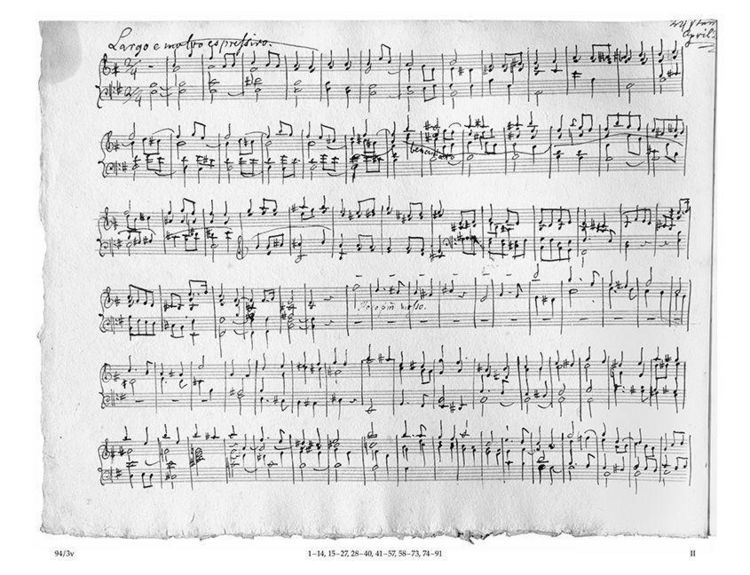 Largo e molto espressivo.
April.
94/3v
1–14, 15–27, 28–40, 41–57, 58–73, 74–91
II